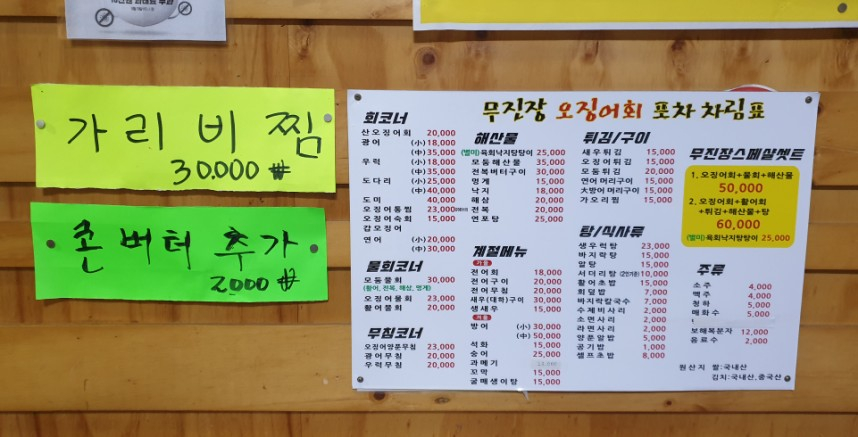 가리비찜
30,000 ₩
존버터 추가
2,000 ₩
무진장 오징어회 포차 차림표
회코너
산오징어회 20,000
광어 (小)18,000
(中)35,000
우럭 (小)18,000
(中)35,000
도다리 (小)25,000
(中)40,000
도미 40,000
오징어통찜 23,000
오징어숙회 15,000
갑오징어
연어 (小)20,000
(中)30,000
물회코너
모듬물회 30,000
(활어, 전복, 해삼, 멍게)
오징어물회 23,000
활어물회 20,000
무침코너
오징어양푼무침 23,000
광어무침 20,000
우럭무침 20,000
해산물
(별미)육회낙지탕탕이 25,000
모듬해산물 35,000
전복버터구이 30,000
멍게 15,000
낙지 18,000
해삼 20,000
전복 20,000
연포탕 25,000
계절메뉴
가을
전어회 18,000
전어구이 20,000
전어무침 20,000
새우(대하)구이 30,000
생새우 15,000
겨울
방어 (小)30,000
(中)50,000
석화 15,000
숭어 25,000
과메기
꼬막 15,000
굴매생이탕 15,000
튀김/구이
새우튀김 15,000
오징어튀김 15,000
모듬튀김 20,000
연어머리구이 15,000
대방어머리구이 15,000
가오리찜 15,000
탕/식사류
생우럭탕 23,000
바지락탕 15,000
알탕 15,000
서더리탕 10,000
활어초밥 15,000
회덮밥 7,000
바지락칼국수 7,000
수제비사리 2,000
소면사리 2,000
라면사리 2,000
양푼알밥 5,000
공기밥 1,000
셀프초밥 8,000
무진장스페셜셋트
1. 오징어회+물회+해산물
50,000
2. 오징어회+활어회
+튀김+해산물+탕
60,000
(별미)육회낙지탕탕이 25,000
주류
소주 4,000
맥주 4,000
청하 5,000
매화수 5,000
보해복분자 12,000
음료수 2,000
원산지 쌀:국내산
김치:국내산,중국산